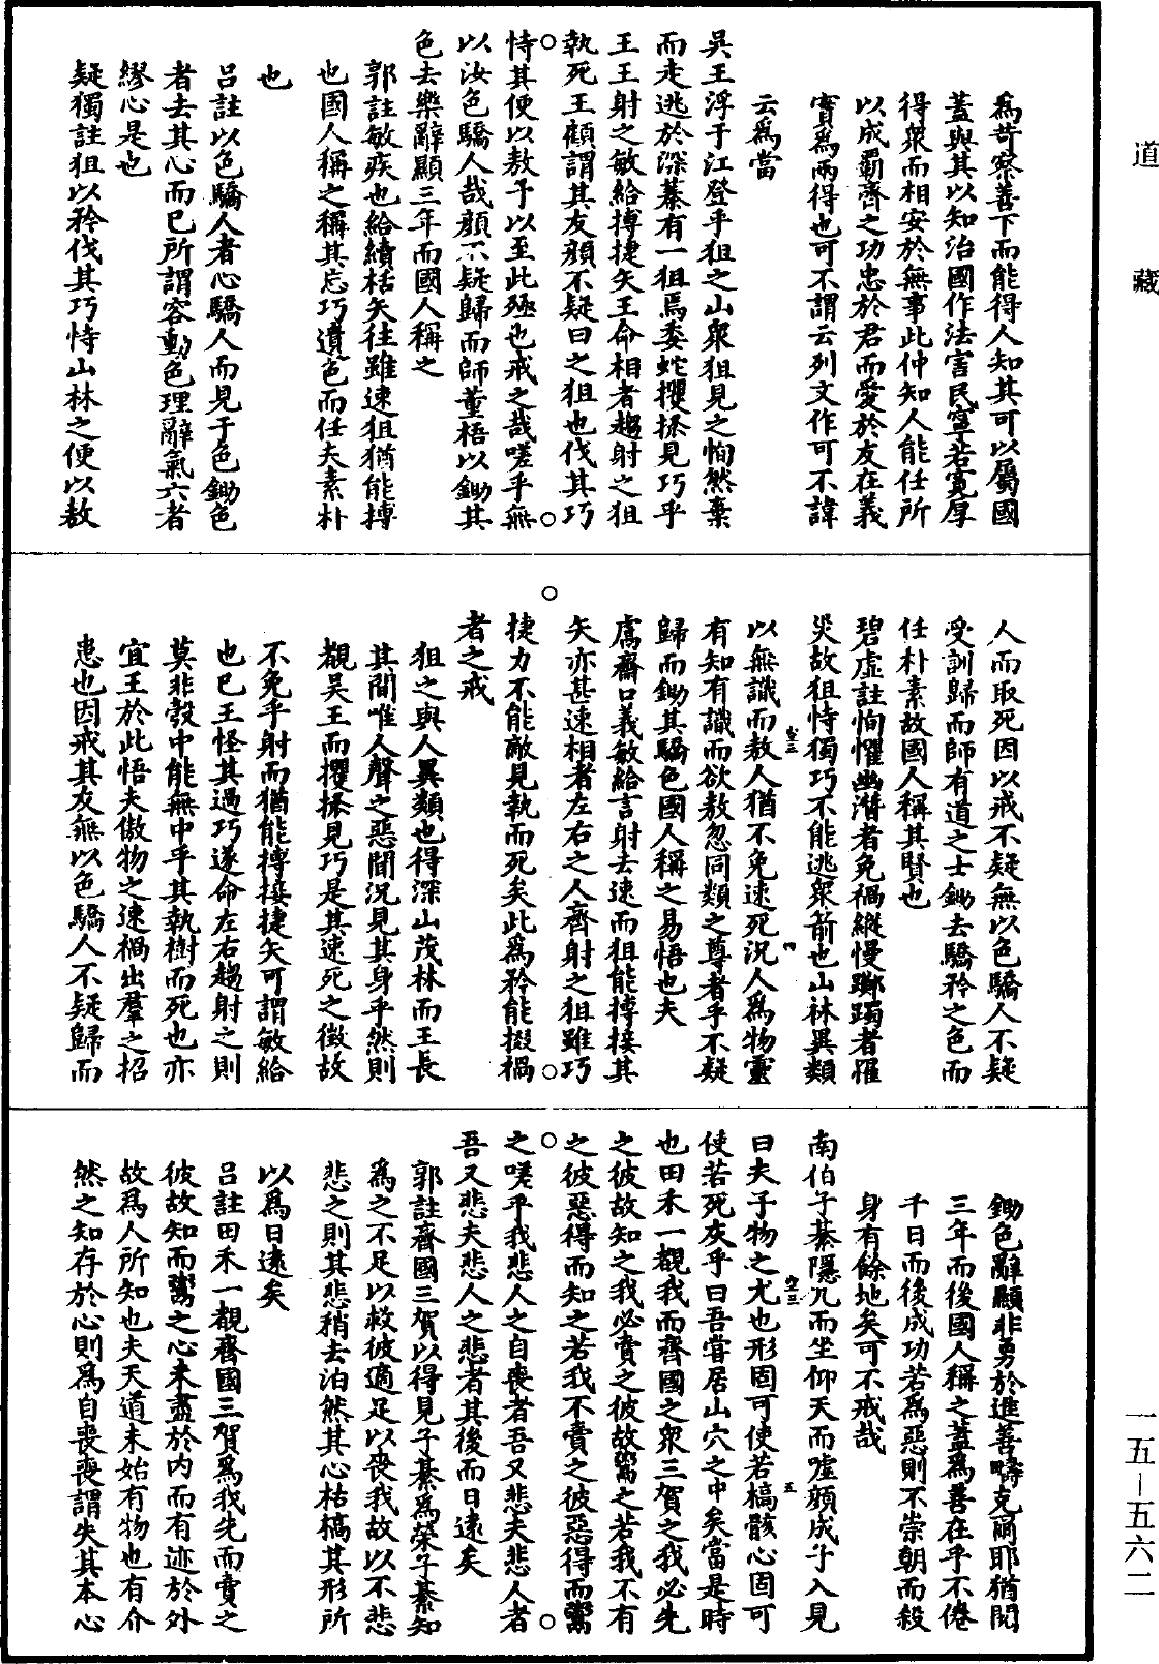 道藏
爲苛察善下而能得人知其可以屬國
蓋與其以知治國作法害民寧若寬厚
得衆而相安於無事此仲知人能任所
以成霸齊之功忠於君而愛於友在義
實爲兩得也可不謂云列文作可不諱
云爲當
吳王浮于江登乎狙之山衆狙見之恂然棄
而走逃於深蓁有一狙焉委蛇攫搽見巧乎
王王射之敏給搏捷矢王命相者趨射之狙
執死王顧謂其友顔不疑曰之狙也伐其巧
恃其便以敖予以至此殛也戒之哉嗟乎無
以汝色驕人哉顔不疑歸而師董梧以鋤其
色去樂辭顯三年而國人稱之
郭註敏疾也給續括矢往雖速狙猶能搏
也國人稱之稱其忘巧遺色而任夫素朴
也
呂註以色驕人者心驕人而見于色鋤色
者去其心而已所謂容動色理辭氣六者
繆心是也
疑獨註狙以矜伐其巧恃山林之便以敖
人而取死因以戒不疑無以色驕人不疑
受訓歸而師有道之士鋤去驕矜之色而
任朴素故國人稱其賢也
碧虛註恂懼幽潛者免禍縱慢躑躅者罹
災故狙恃獨巧不能逃衆箭也山林異類
以無識而敖人猶不免速死況人爲物靈
有知有識而欲敖忽同類之尊者乎不疑
歸而鋤其驕色國人稱之易悟也夫
鬳齋口義敏給言射去速而狙能搏接其
矢亦甚速相者左右之人齊射之狙雖巧
捷力不能敵見執而死矣此爲矜能掇禍
者之戒
狙之與人異類也得深山茂林而王長
其間唯人聲之惡聞況見其身乎然則
覩吳王而攫搽見巧是其速死之徵故
不免乎射而猶能搏接捷矢可謂敏給
也已王怪其過巧遂命左右趨射之則
莫非彀中能無中乎其執樹而死也亦
宜王於此悟夫傲物之速禍出羣之招
患也因戒其友無以色驕人不疑歸而
鋤色辭顯非勇於進善疇克爾耶猶閱
三年而後國人稱之蓋爲善在乎不倦
千日而後成功若爲惡則不崇朝而殺
身有餘地矣可不戒哉
南伯子綦隱几而坐仰天而噓顔成子入見
曰夫子物之尤也形固可使若槁骸心固可
使若死灰乎曰吾嘗居山穴之中矣當是時
也田禾一覩我而齊國之衆三賀之我必先
之彼故知之我必賣之彼故鬻之若我不有
之彼惡得而知之若我不賣之彼惡得而鬻
之嗟乎我悲人之自喪者吾又悲夫悲人者
吾又悲夫悲人之悲者其後而日遠矣
郭註齊國三賀以得見子綦爲榮子綦知
爲之不足以救彼適足以喪我故以不悲
悲之則其悲稍去泊然其心枯槁其形所
以爲日遠矣
呂註田禾一覩齊國三賀爲我先而賣之
彼故知而鬻之心未盡於内而有迹於外
故爲人所知也夫天道未始有物也有介
然之知存於心則爲自喪喪謂失其本心
一五—五六二